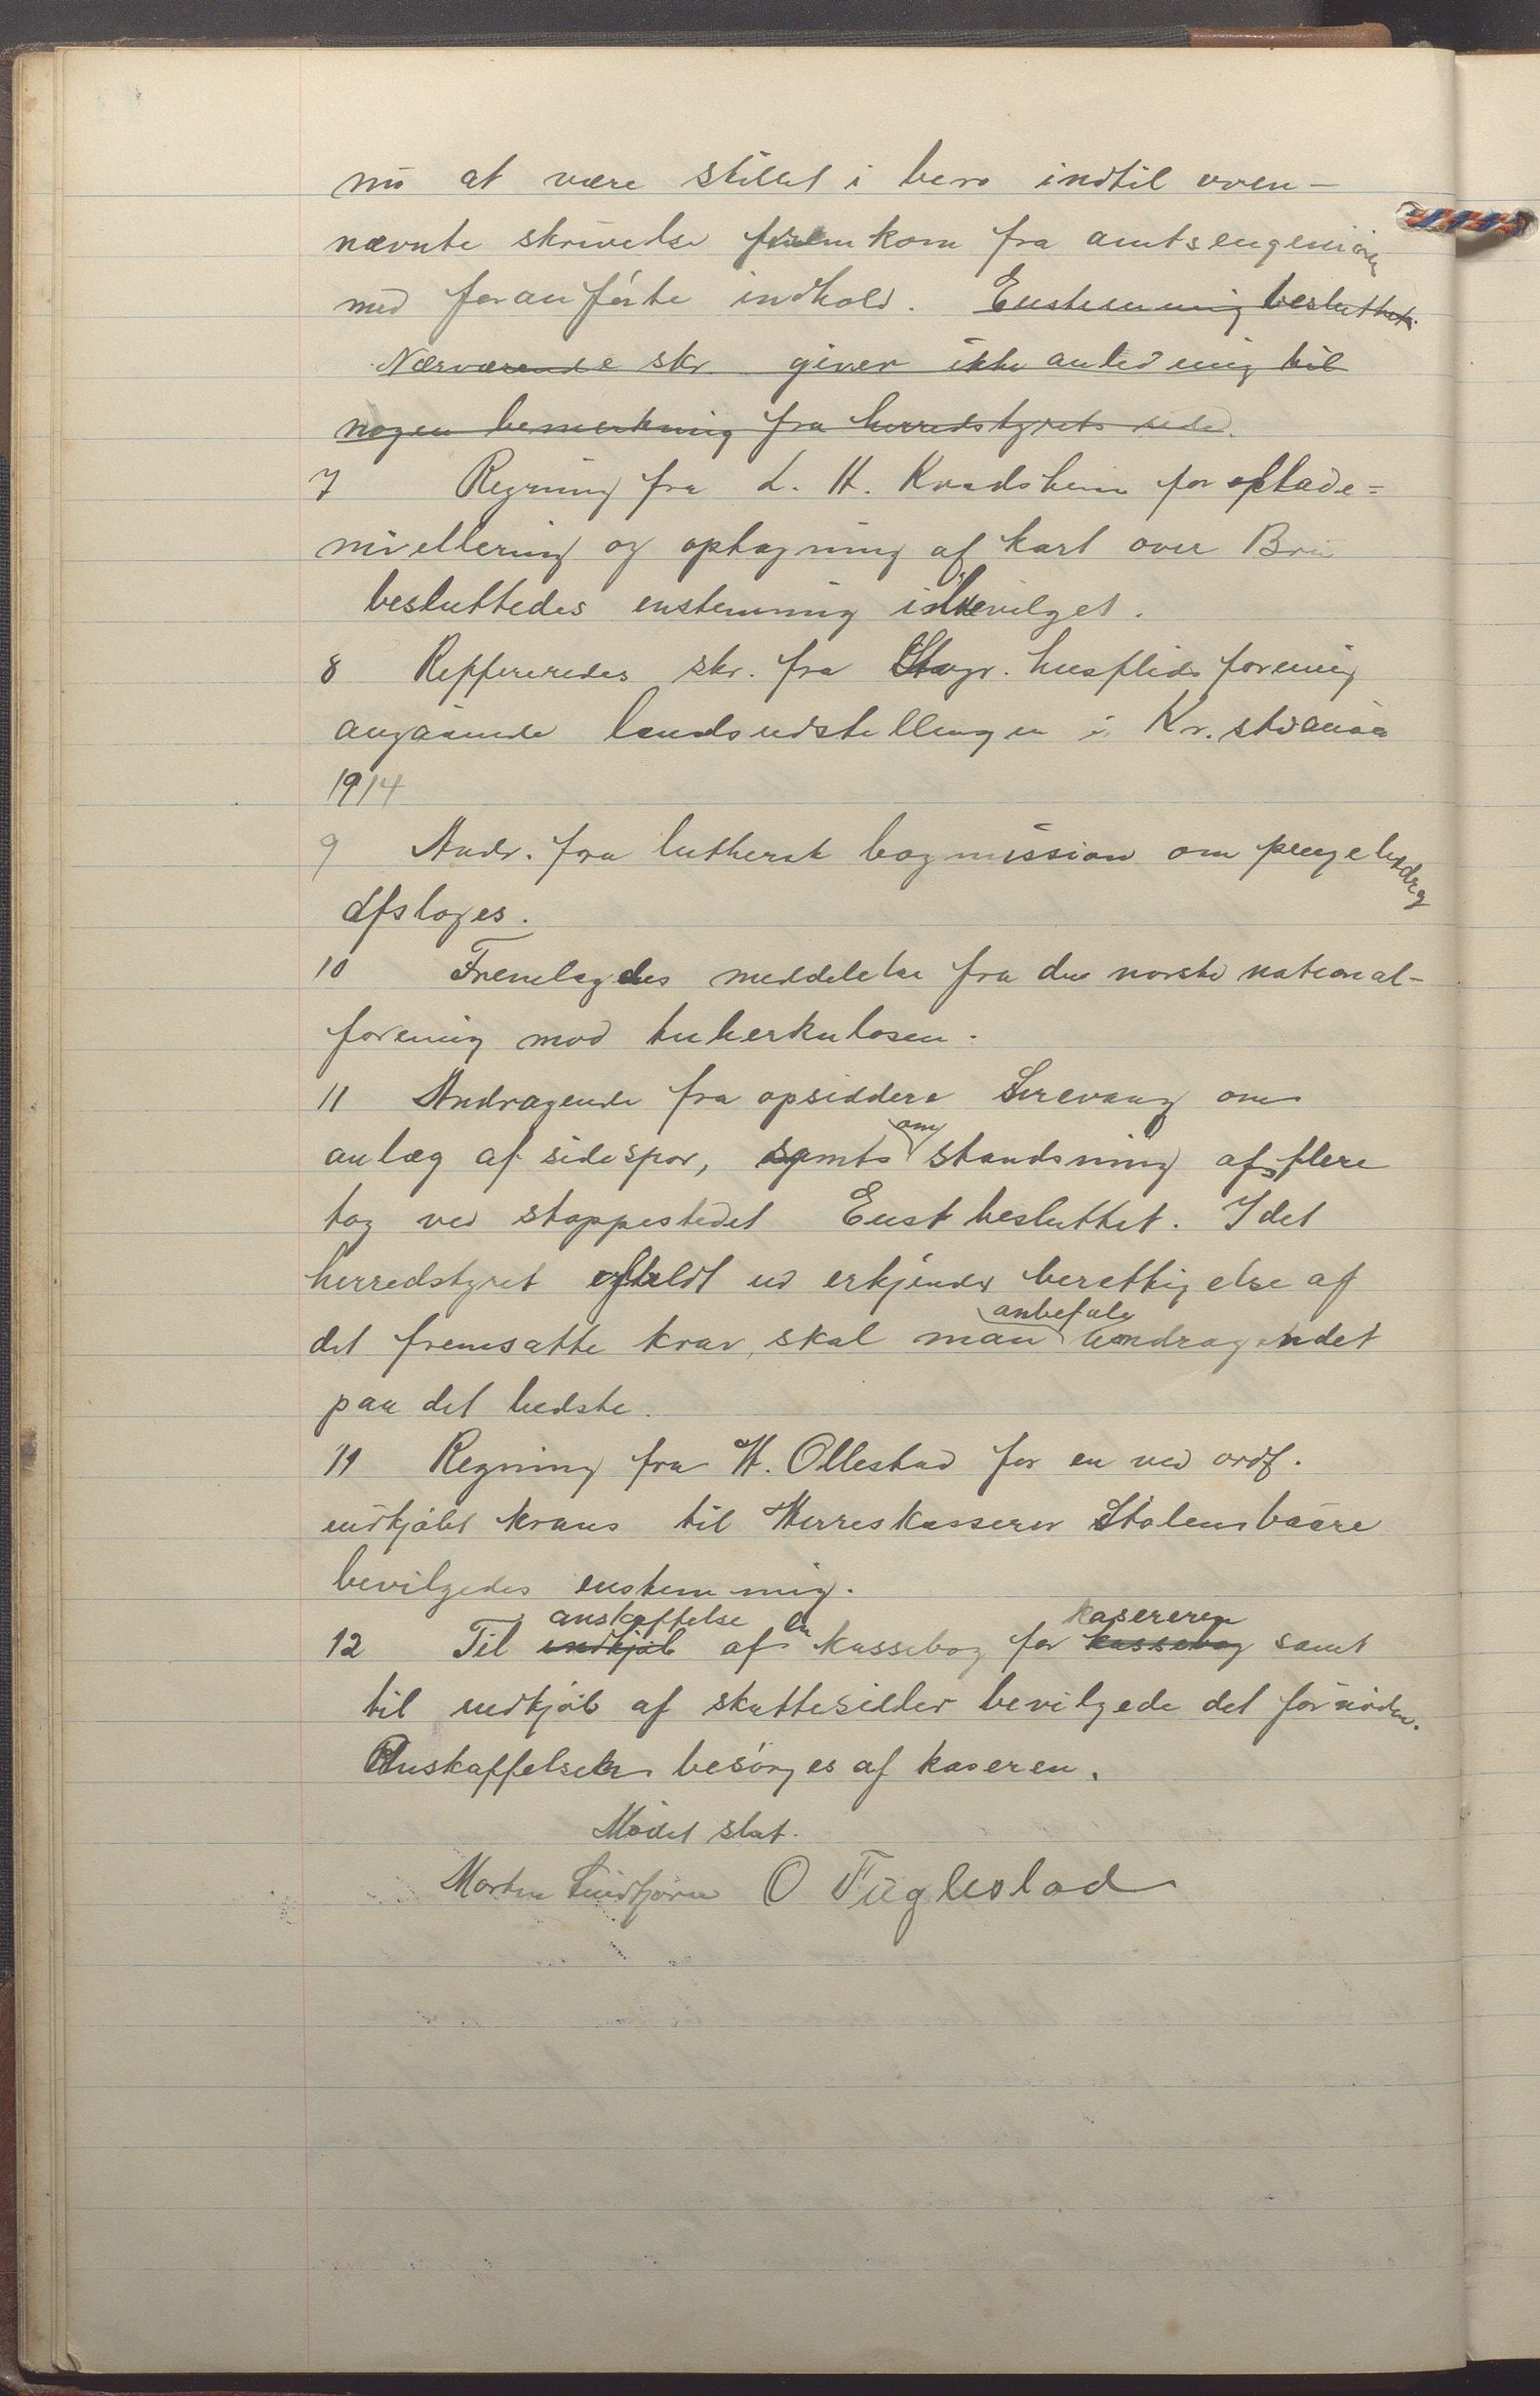 nu at være stillet i bero indtil oven-
nævnte skrivelse fremkom fra amtsengeniören
med foranförte indhold. Enstemmig besluttet.
Nærværende skr. giver ikke anledning til
nogen bemerkning fra herredstyrets side.
7 Regning fra L. H. Kvadsheim for flade=
nivellering og optagning af kart over Bru
besluttedes enstemmig bevilget.
8 Reffereredes skr. fra Stvgr. husflids forening
angaaende landsudstillingen i Kr.stiania
1914
9 Andr. fra luthersk bogmission om pengebidrag
afsloges.
10 Fremlagdes meddelelse fra den norske national-
forening mod tuberkulosen.
11 Andragende fra opsiddere Sirevaag om
anlæg af sidespor, samt om standsning af flere
tog ved stoppestedet Enst besluttet. Idet
herredstyret fuldt ud erkjender berettigelse af
det fremsatte krav, skal man anbefale andragendet
paa det bedste.
11 Regning fra H. Ollestad for en ved ordf.
indkjöbt krans til Herreskasserer Stolens baare
bevilgedes enstemmig.
12 Til indkjöb anskaffelse af en kassebog for kassebog kasereren samt
til indkjöb af skattesedler bevilgede det fornödne.
Anskaffelsen besörges af kaseren.
Mödet slut.
Morten Lindtjörn O Fuglestad